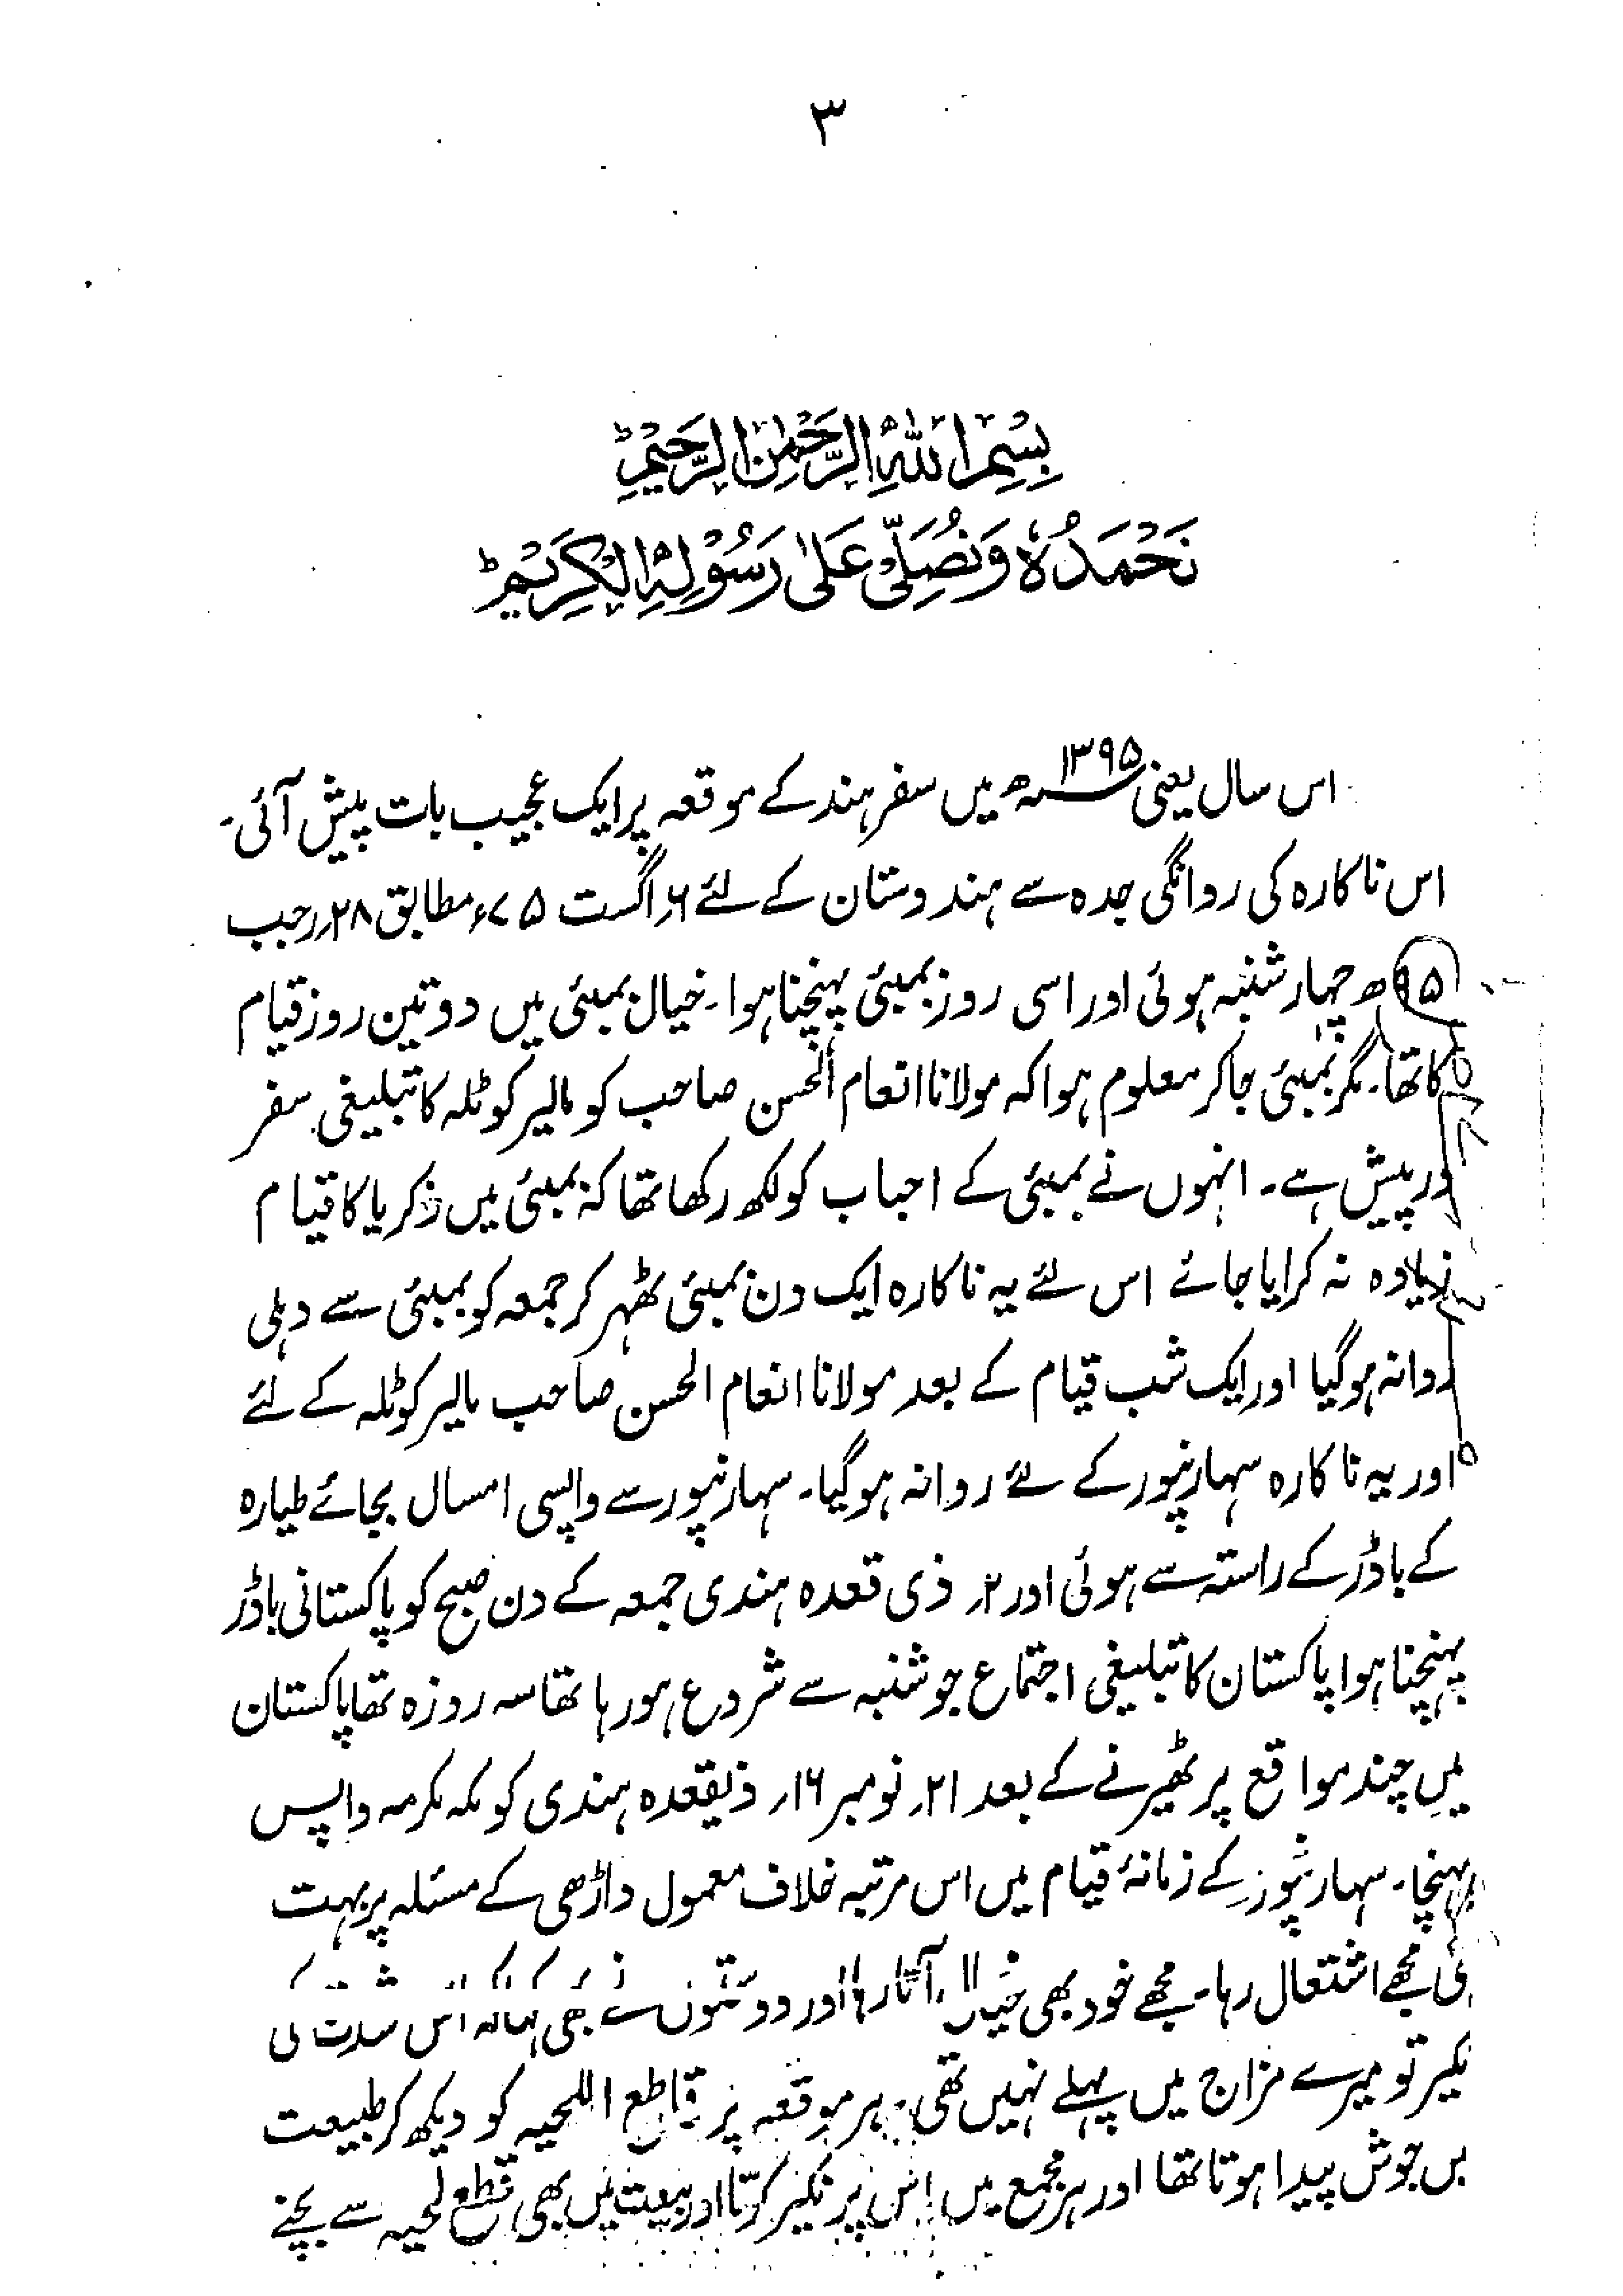 ۳
بِسْمِ اللّٰهِ الرَّحْمٰنِ الرَّحِیْمِؕ
نَحْمَدُهٗ وَنُصَلِّیْ عَلٰی رَسُوْلِهِ الْکَرِیْمِؕ
اس سال یعنی ۱۳۹۵ھ میں سفر ہند کے موقعہ پر ایک عجیب بات پیش آئی۔
اس ناکارہ کی روانگی جدہ سے ہندوستان کے لئے ۶؍اگست ۷۵ء مطابق ۲۸؍رجب
۹۵ھ چہار شنبہ ہوئی اور اسی روز بمبئی پہنچنا ہوا۔ خیال بمبئی میں دو تین روز قیام
کا تھا۔ مگر بمبئی جا کر معلوم ہوا کہ مولانا انعام الحسن صاحب کو مالیر کوٹلہ کا تبلیغی سفر
درپیش ہے۔ انہوں نے بمبئی کے احباب کو لکھ رکھا تھا کہ بمبئی میں زکریا کا قیام
زیادہ نہ کرایا جائے اس لئے یہ ناکارہ ایک دن بمبئی ٹھہر کر جمعہ کو بمبئی سے دہلی
روانہ ہوگیا اور ایک شب قیام کے بعد مولانا انعام الحسن صاحب مالیر کوٹلہ کے لئے
اور یہ ناکارہ سہارنپور کے لئے روانہ ہوگیا۔ سہارنپور سے واپسی امسال بجائے طیارہ
کے باڈر کے راستہ سے ہوئی اور ۲؍ ذی قعدہ ہندی جمعہ کے دن صبح کو پاکستانی باڈر
پہنچنا ہوا پاکستان کا تبلیغی اجتماع جو شنبہ سے شروع ہو رہا تھا سہ روزہ تھا پاکستان
میں چند مواقع پر ٹھیرنے کے بعد ۲۱؍ نومبر ۱۶؍ ذیقعدہ ہندی کو مکہ مکرمہ واپس
پہنچا۔ سہارنپور کے زمانۂ قیام میں اس مرتبہ خلاف معمول داڑھی کے مسئلہ پر بہت
ہی مجھے اشتعال رہا۔ مجھے خود بھی خیال آتا رہا اور دوستوں نے بھی کہا کہ اس شدت کی
نکیر تو میرے مزاج میں پہلے نہیں تھی۔ ہر موقعہ پر قاطع اللحیہ کو دیکھ کر طبیعت
میں جوش پیدا ہوتا تھا اور ہر مجمع میں اس پر نکیر کرتا اور بیعت میں بھی قطع لحیہ سے بچنے